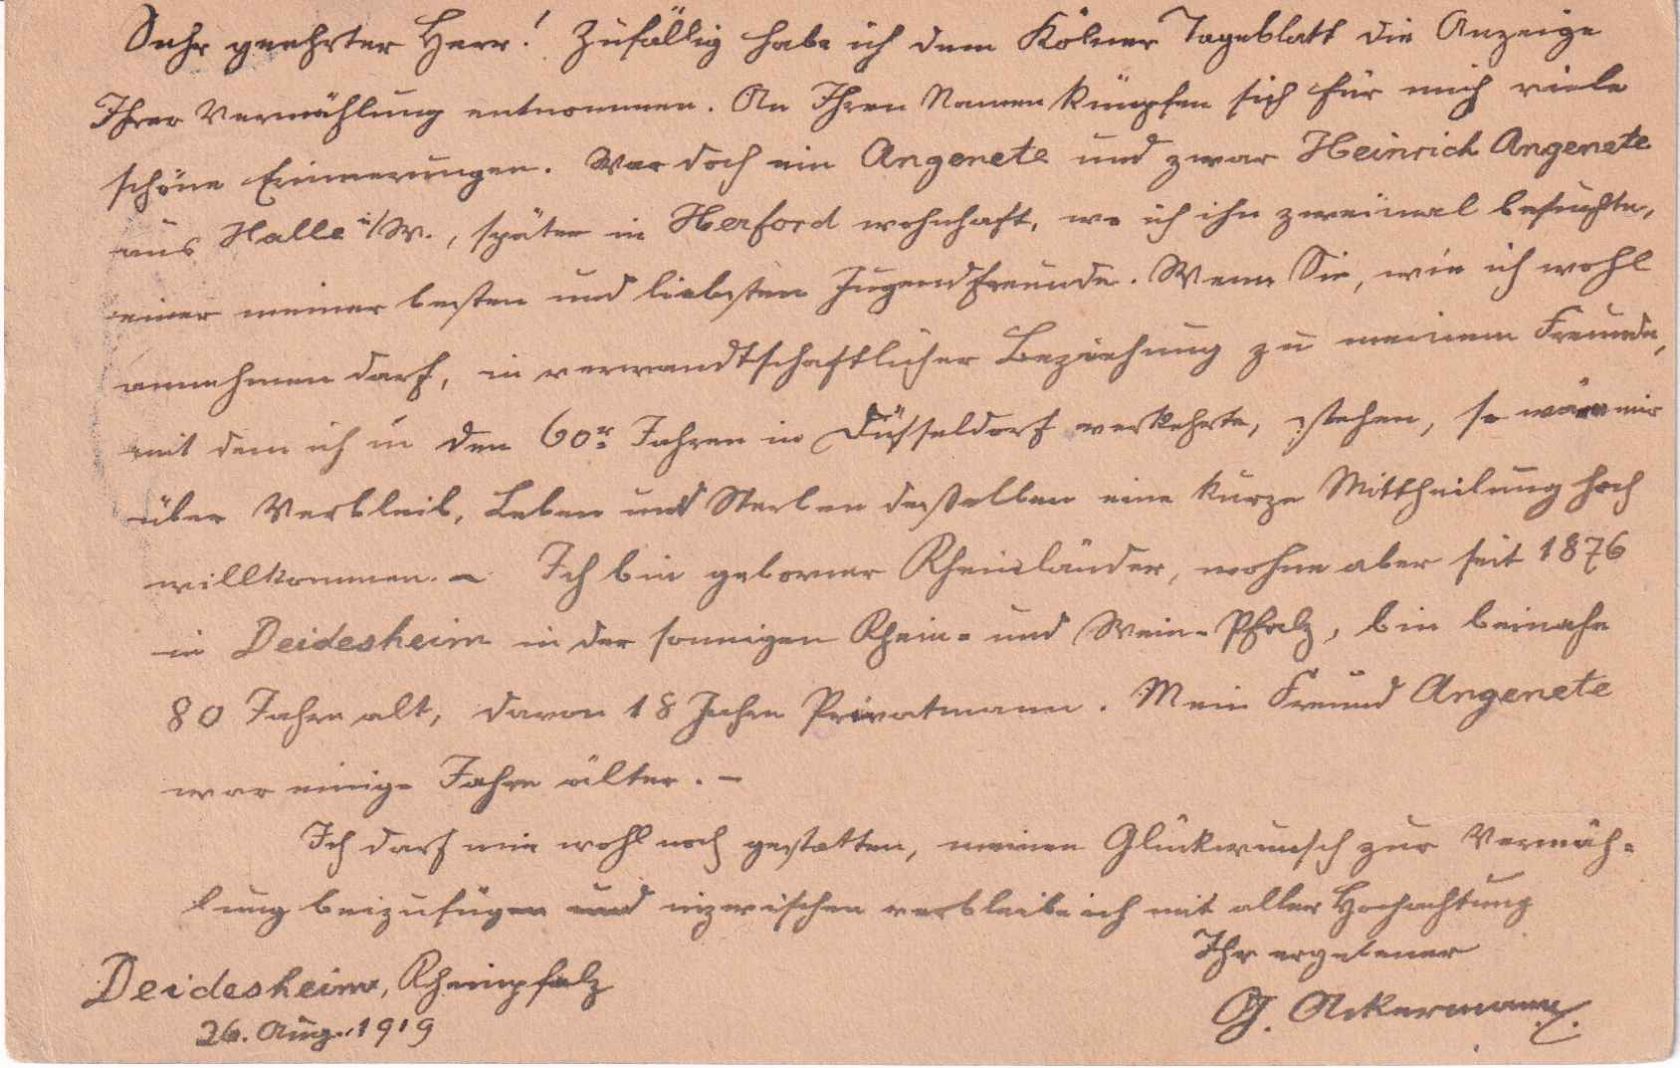 Sehr geehrter Herr! Zufällig habe ich dem Kölner Tageblatt die Anzeige
Ihrer Vermählung entnommen. An Ihren Namen knüpfen sich für mich viele
schöne Erinnerungen. War doch ein Angenete und zwar Heinrich Angenete
aus Halle i/W., später in Herford wohnhaft, wo ich ihn zweimal besuchte,
einer meiner besten und liebsten Jugendfreunde. Wenn Sie, wie ich wohl
annehmen darf, in verwandtschaftlicher Beziehung zu meinem Freunde,
mit dem ich in den 60r Jahren in Düsseldorf verkehrte, stehen, so wäre mir
über Verbleib, Leben und Sterben desselben eine kurze Mittheilung hoch
willkommen. – Ich bin geborner Rheinländer, wohne aber seit 1876
in Deidesheim in der sonnigen Rhein- und Wein-Pfalz, bin beinahe
80 Jahre alt, davon 18 Jahre Privatmann. Mein Freund Angenete
war einige Jahre älter. –
Ich darf mir wohl noch gestatten, meinen Glückwunsch zur Vermäh-
lung beizufügen und inzwischen verbleibe ich mit aller Hochachtung
Ihr ergebener
Deidesheim, Rheinpfalz
26. Aug. 1919
G. Ackermann